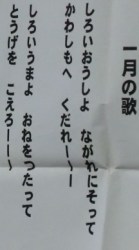 一月の歌
しろいおうしよ　ながれにそって
かわしもへ　くだれー〜ー
しろいうまよ　おねをつたって
とうげを　こえろーー〜